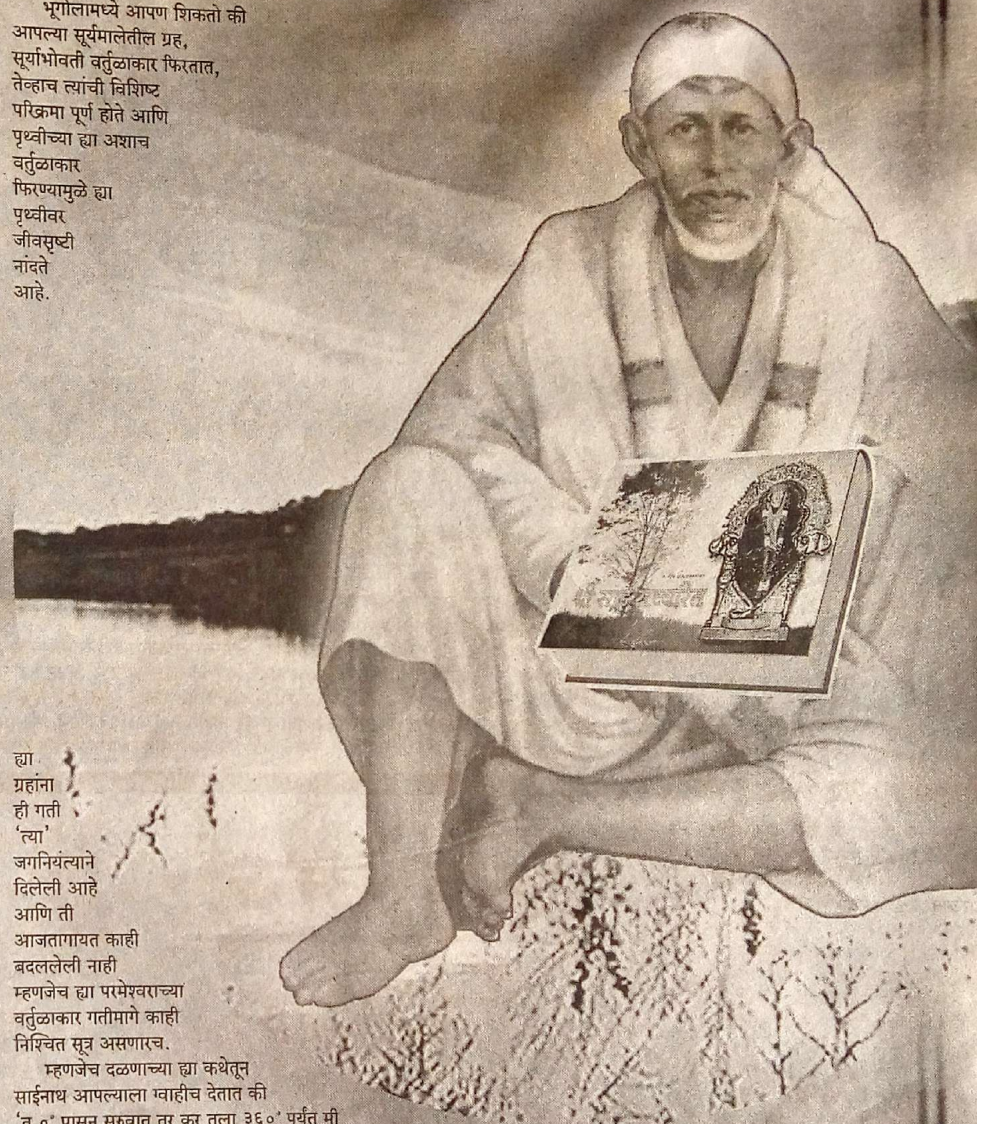 भूगोलामध्ये आपण शिकतो की
आपल्या सूर्यमालेतील ग्रह,
सूर्याभोवती वर्तुळाकार फिरतात,
तेव्हाच त्यांची विशिष्ट
परिक्रमा पूर्ण होते आणि
पृथ्वीच्या ह्या अशाच
वर्तुळाकार
फिरण्यामुळे ह्या
पृथ्वीवर
जीवसृष्टी
नांदते
आहे.
ह्या
ग्रहांना
ही गती
‘त्या’
जगनियंत्याने
दिलेली आहे
आणि ती
आजतागायत काही
बदललेली नाही
म्हणजेच ह्या परमेश्वराच्या
वर्तुळाकार गतीमागे काही
निश्चित सूत्र असणारच.
म्हणजेच दळणाच्या ह्या कथेतून
साईनाथ आपल्याला ग्वाहीच देतात की
‘तू ०° पासून सुरुवात तर कर तुला ३६०° पर्यंत मी